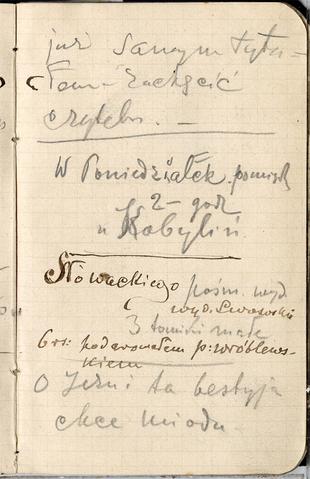 już samym tytu-
łem zachęcić
czyteln. —
W Poniedziałek pomiędz
2 - godz
u Kobyliń.
Słowackiego pośm. wyd
wyd. Lwowskie
3 tomiki małe
6 rs. podarowałem p. Wróblews-
kiem
O Jerni ta bestyja
chce miodu.